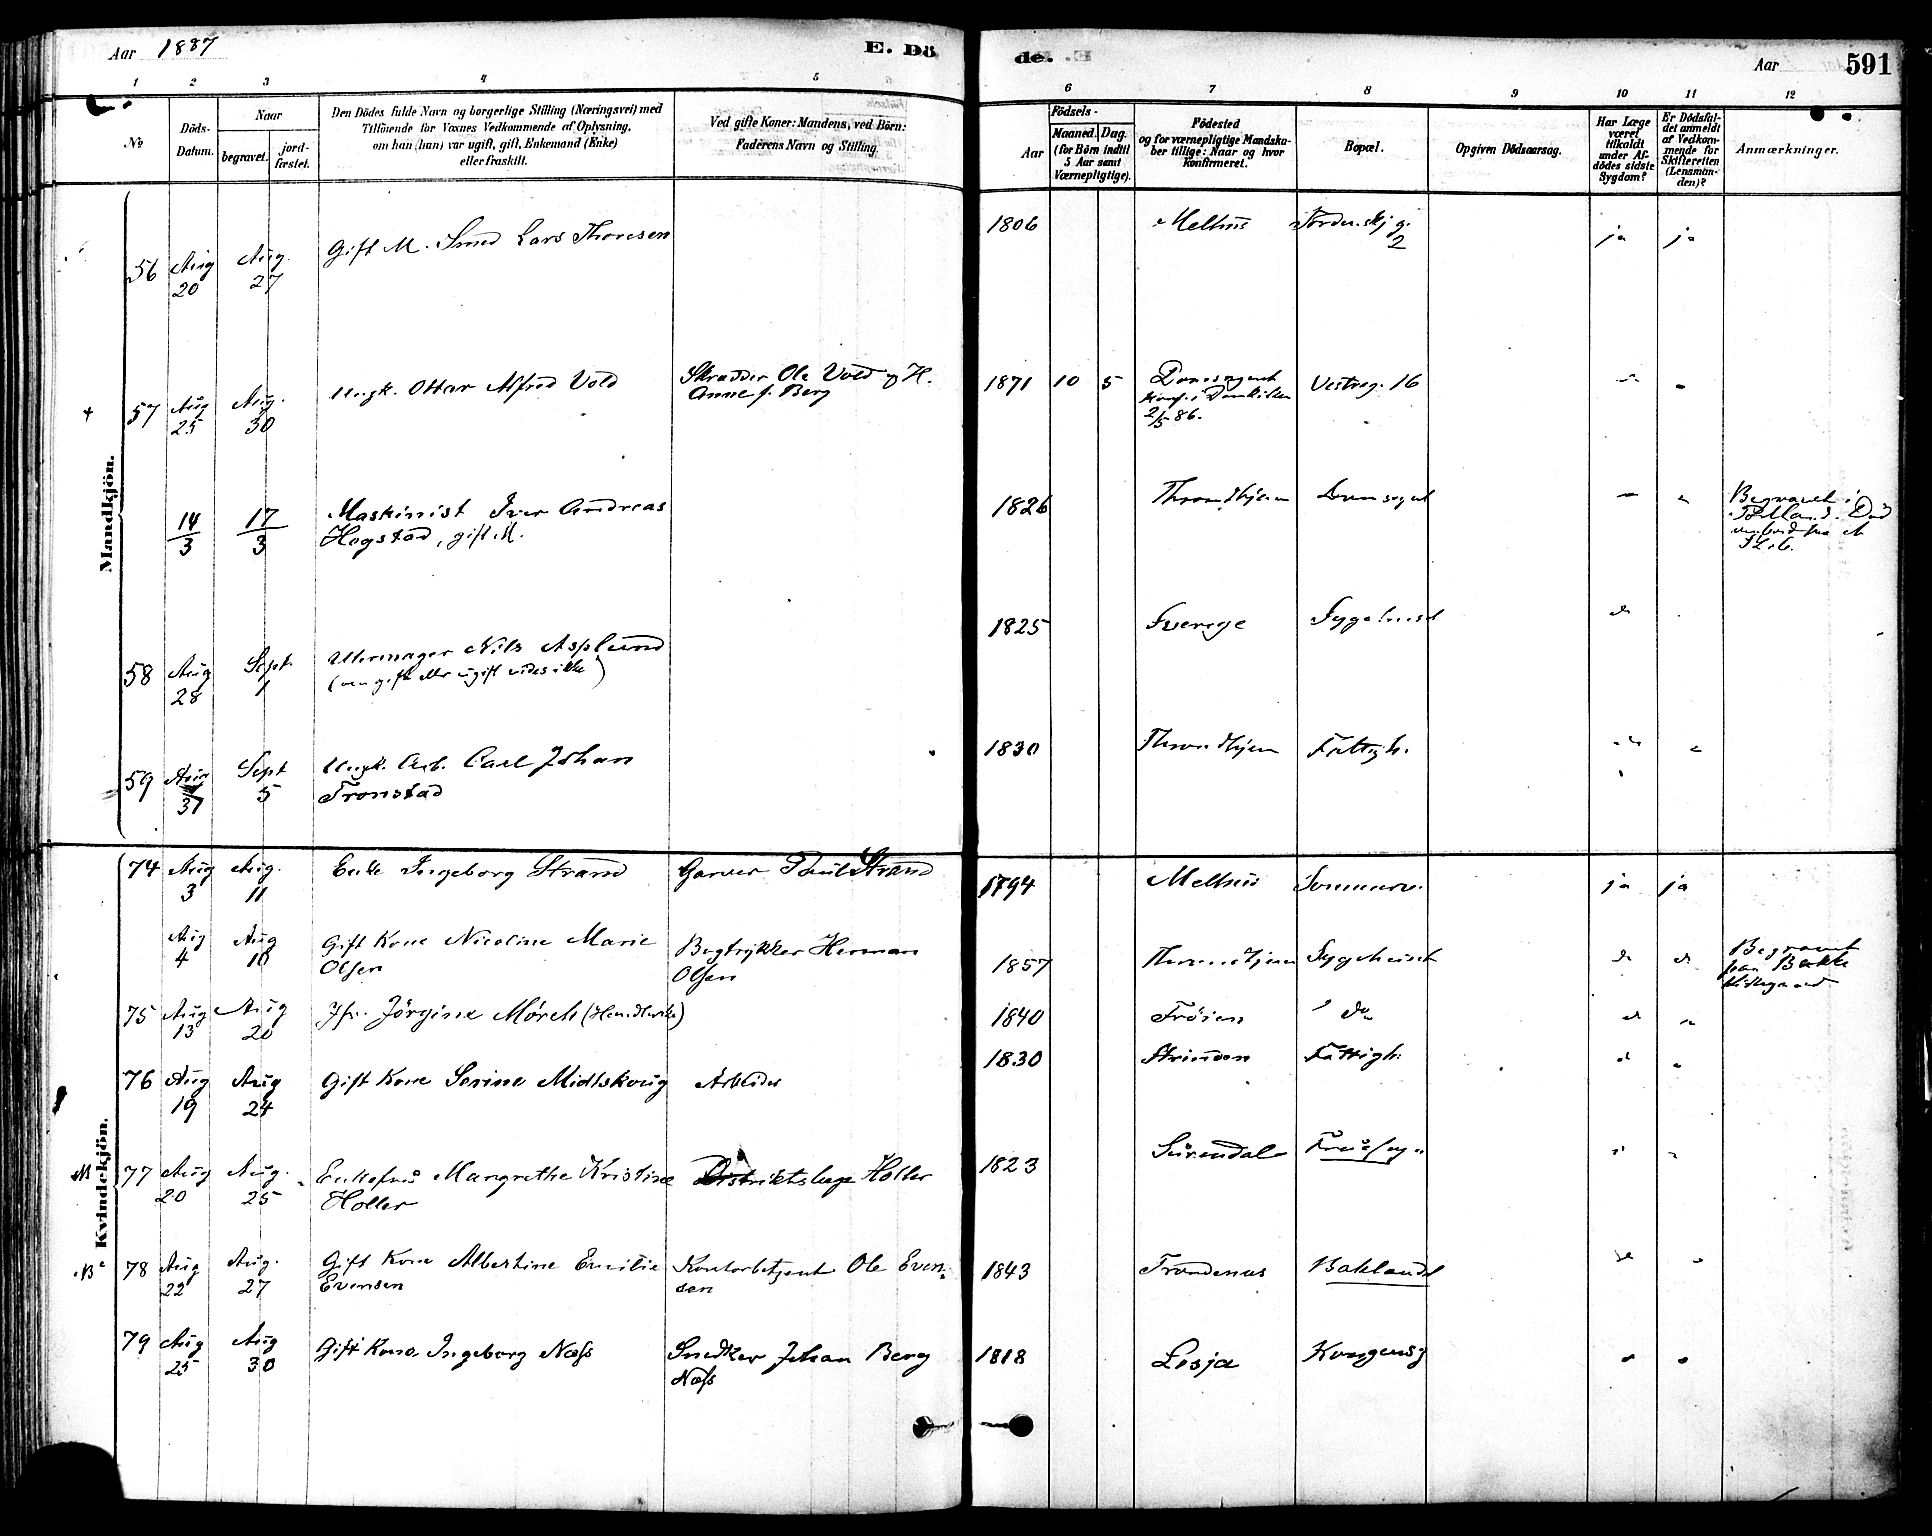 Aar 1887
E. Dö
de.
Aar
591
1 2 3 4 5
6 7 8 9 10 11 12
No
Döds-Datum.
Naar
begravet.
jord-fæstet.
Den Dödes fulde Navn og borgerlige Stilling (Næringsvei) med
Tilföiende for Voxnes Vedkommende af Oplysning,
om han (hun) var ugift, gift, Enkemand (Enke)
eller fraskilt.
Ved gifte Koner: Mandens, ved Börn:
Faderens Navn og Stilling.
Födsels-
Aar
Maaned. Dag.
(for Börn indtil
5 Aar samt
Værnepligtige).
Födested
og for værnepligtige Mandska-
ber tillige: Naar og hvor
Konfirmeret.
Bopæl.
Opgiven Dödsaarsag.
Har Læge
været
tilkaldt
under Af-
dödes sidste
Sygdom?
Er Dödsfal-
det anmeldt
af Vedkom-
mende for
Skifteretten
(Lensman-
den)?
Anmærkninger.
Mandkjön.
56 Aug 20 Aug. 27 Gift M. Smed Lars Thoresen 1806 Melhus Tordenskj g. 2 ja ja
57 Aug 25 Aug. 30 Ungk. Ottar Alfred Vold Skrædder Ole Vold og H.
Anne f. Berg 1871 10 5 Domsognet
Konf. i Domkirken
2/5 86. Vestreg. 16
14/3 17/3 Maskinist Iver Andreas
Hegstad, gift M. 1826 Throndhjem Domsognet Begravet i
58 Aug 28 Sept. 1 Uhrmager Nils Asplund
(om gift eller ugift vides ikke) 1825 Sverige Sygehuset
59 Aug 31 Sept 5 Ungk. Arb. Carl Johan
Tronstad 1830 Throndhjem Fattigh.
Kvindekjön.
74 Aug 3 Aug. 11 Enke Ingeborg Strand Garver Paul Strand 1794 Melhus ja ja
Aug 4 Aug 10 Gift Kone Nicoline Marie
Olsen Bogtrykker Herman
Olsen 1857 Throndhjem Sygehuset Begravet
paa Bakke
Kirkegaard
75 Aug 13 Aug 20 Jfr. Jörgine Mörch 1840 Fröien do
76 Aug 19 Aug 24 Gift Kone Serine Midtskoug Arbeider 1830 Strinden Fattigh.
77 Aug 20 Aug. 25 Enkefru Margrethe Kristine
Holler Distriktslæge Holler 1823 Surendal
78 Aug 22 Aug. 27 Gift Kone Albertine Emilie
Evensen Kontorbetjent Ole Even-
sen 1843 Trondenæs Baklandet
79 Aug 25 Aug 30 Gift Kone Ingeborg Næss Snedker Johan Berg
Næss 1818 Lesja Kongensg